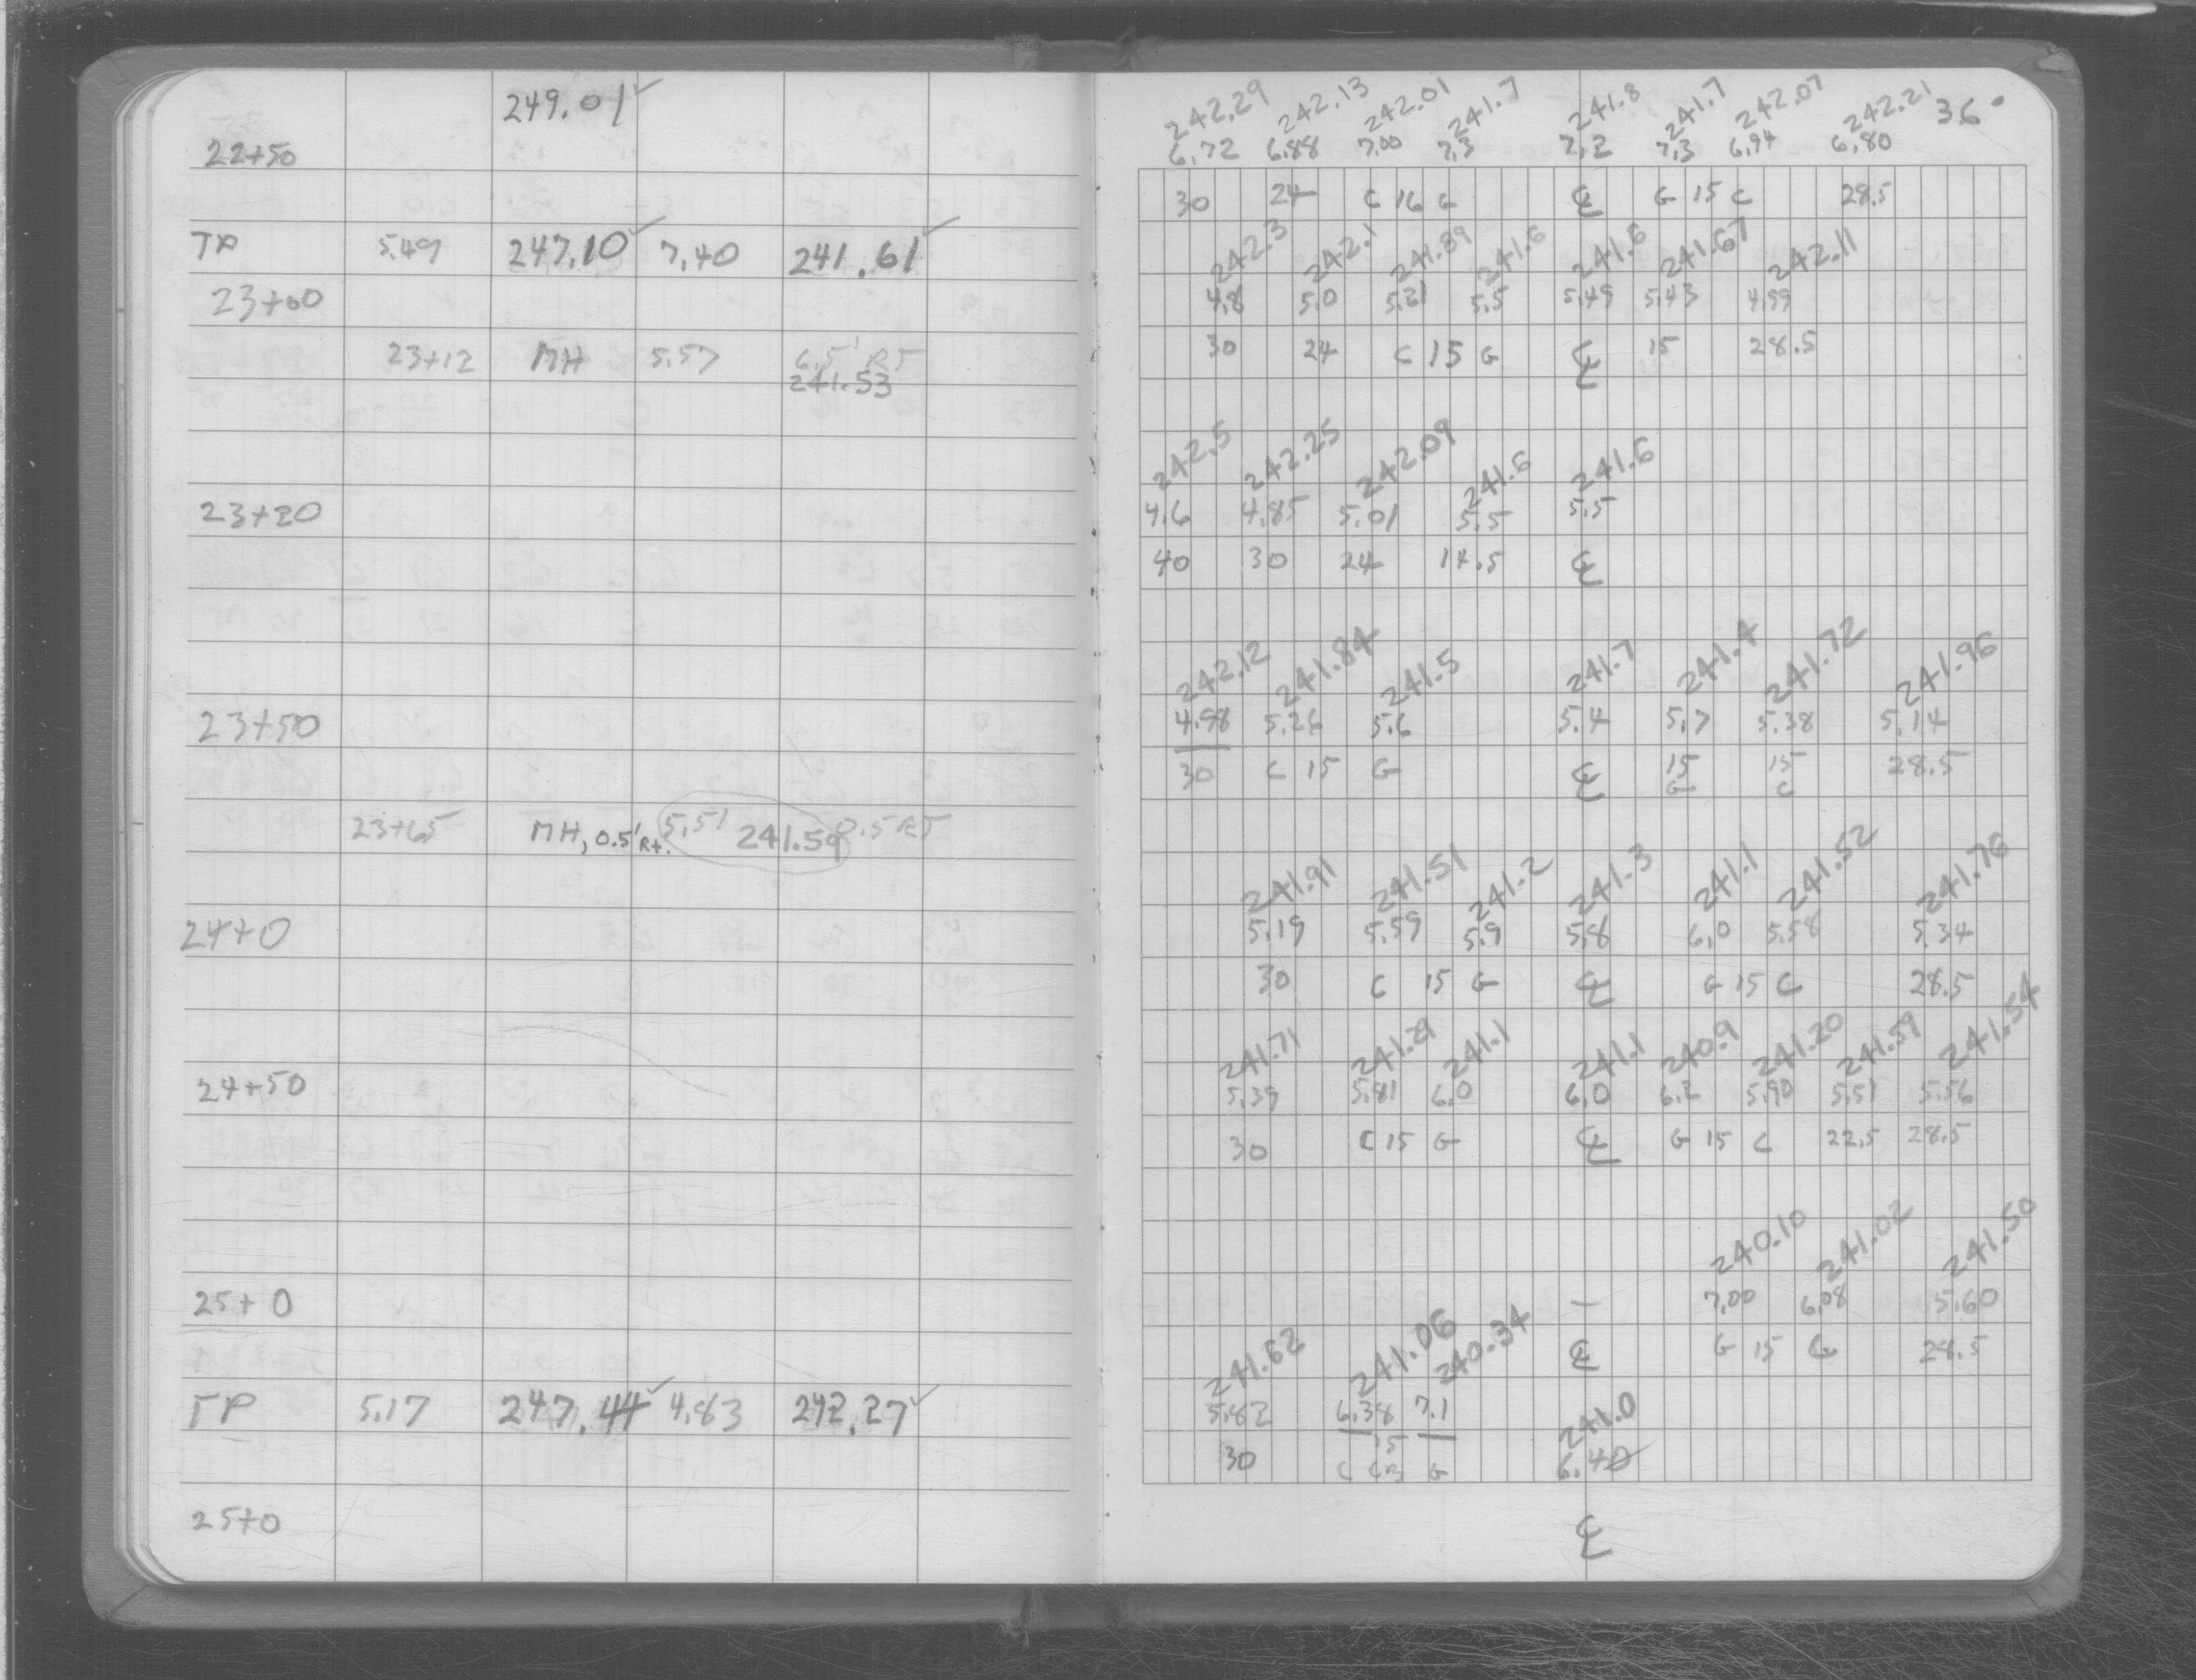 249.01✓
22+50
TP 5.49 247.10✓ 7.40 241.61✓
23+00
23+12 MH 5.57 6.5' RT
241.53
23+20
23+50
23+65 MH, 0.5' Rt. 5.51 241.59 0.5 RT
24+0
24+50
25+0
TP 5.17 247.44✓ 4.83 242.27✓
25+0
242.29 242.13 242.01 241.7 241.8 241.7 242.07 242.21 36°
6.72 6.88 7.00 7.3 7.2 7.3 6.94 6.80
30 24 C 16 G ℄ G 15 C 28.5
242.3 242.1 241.89 241.6 241.6 241.67 242.11
4.8 5.0 5.21 5.5 5.49 5.43 4.99
30 24 C 15 G ℄ 15 28.5
242.5 242.25 242.09 241.6 241.6
4.6 4.85 5.01 5.5 5.5
40 30 24 14.5 ℄
242.12 241.84 241.5 241.7 241.4 241.72 241.96
4.98 5.26 5.6 5.4 5.7 5.38 5.14
30 C 15 G ℄ 15 15 28.5
G C
241.91 241.51 241.2 241.3 241.1 241.52 241.76
5.19 5.59 5.9 5.8 6.0 5.58 5.34
30 C 15 G ℄ G 15 C 28.5
241.71 241.29 241.1 241.1 240.9 241.20 241.59 241.54
5.39 5.81 6.0 6.0 6.2 5.90 5.51 5.56
30 C 15 G ℄ G 15 C 22.5 28.5
240.10 241.02 241.50
— 7.00 6.08 5.60
℄ G 15 C 28.5
241.62 241.06 240.34 241.0
5.82 6.38 7.1 6.40
15
30 C CB G
℄